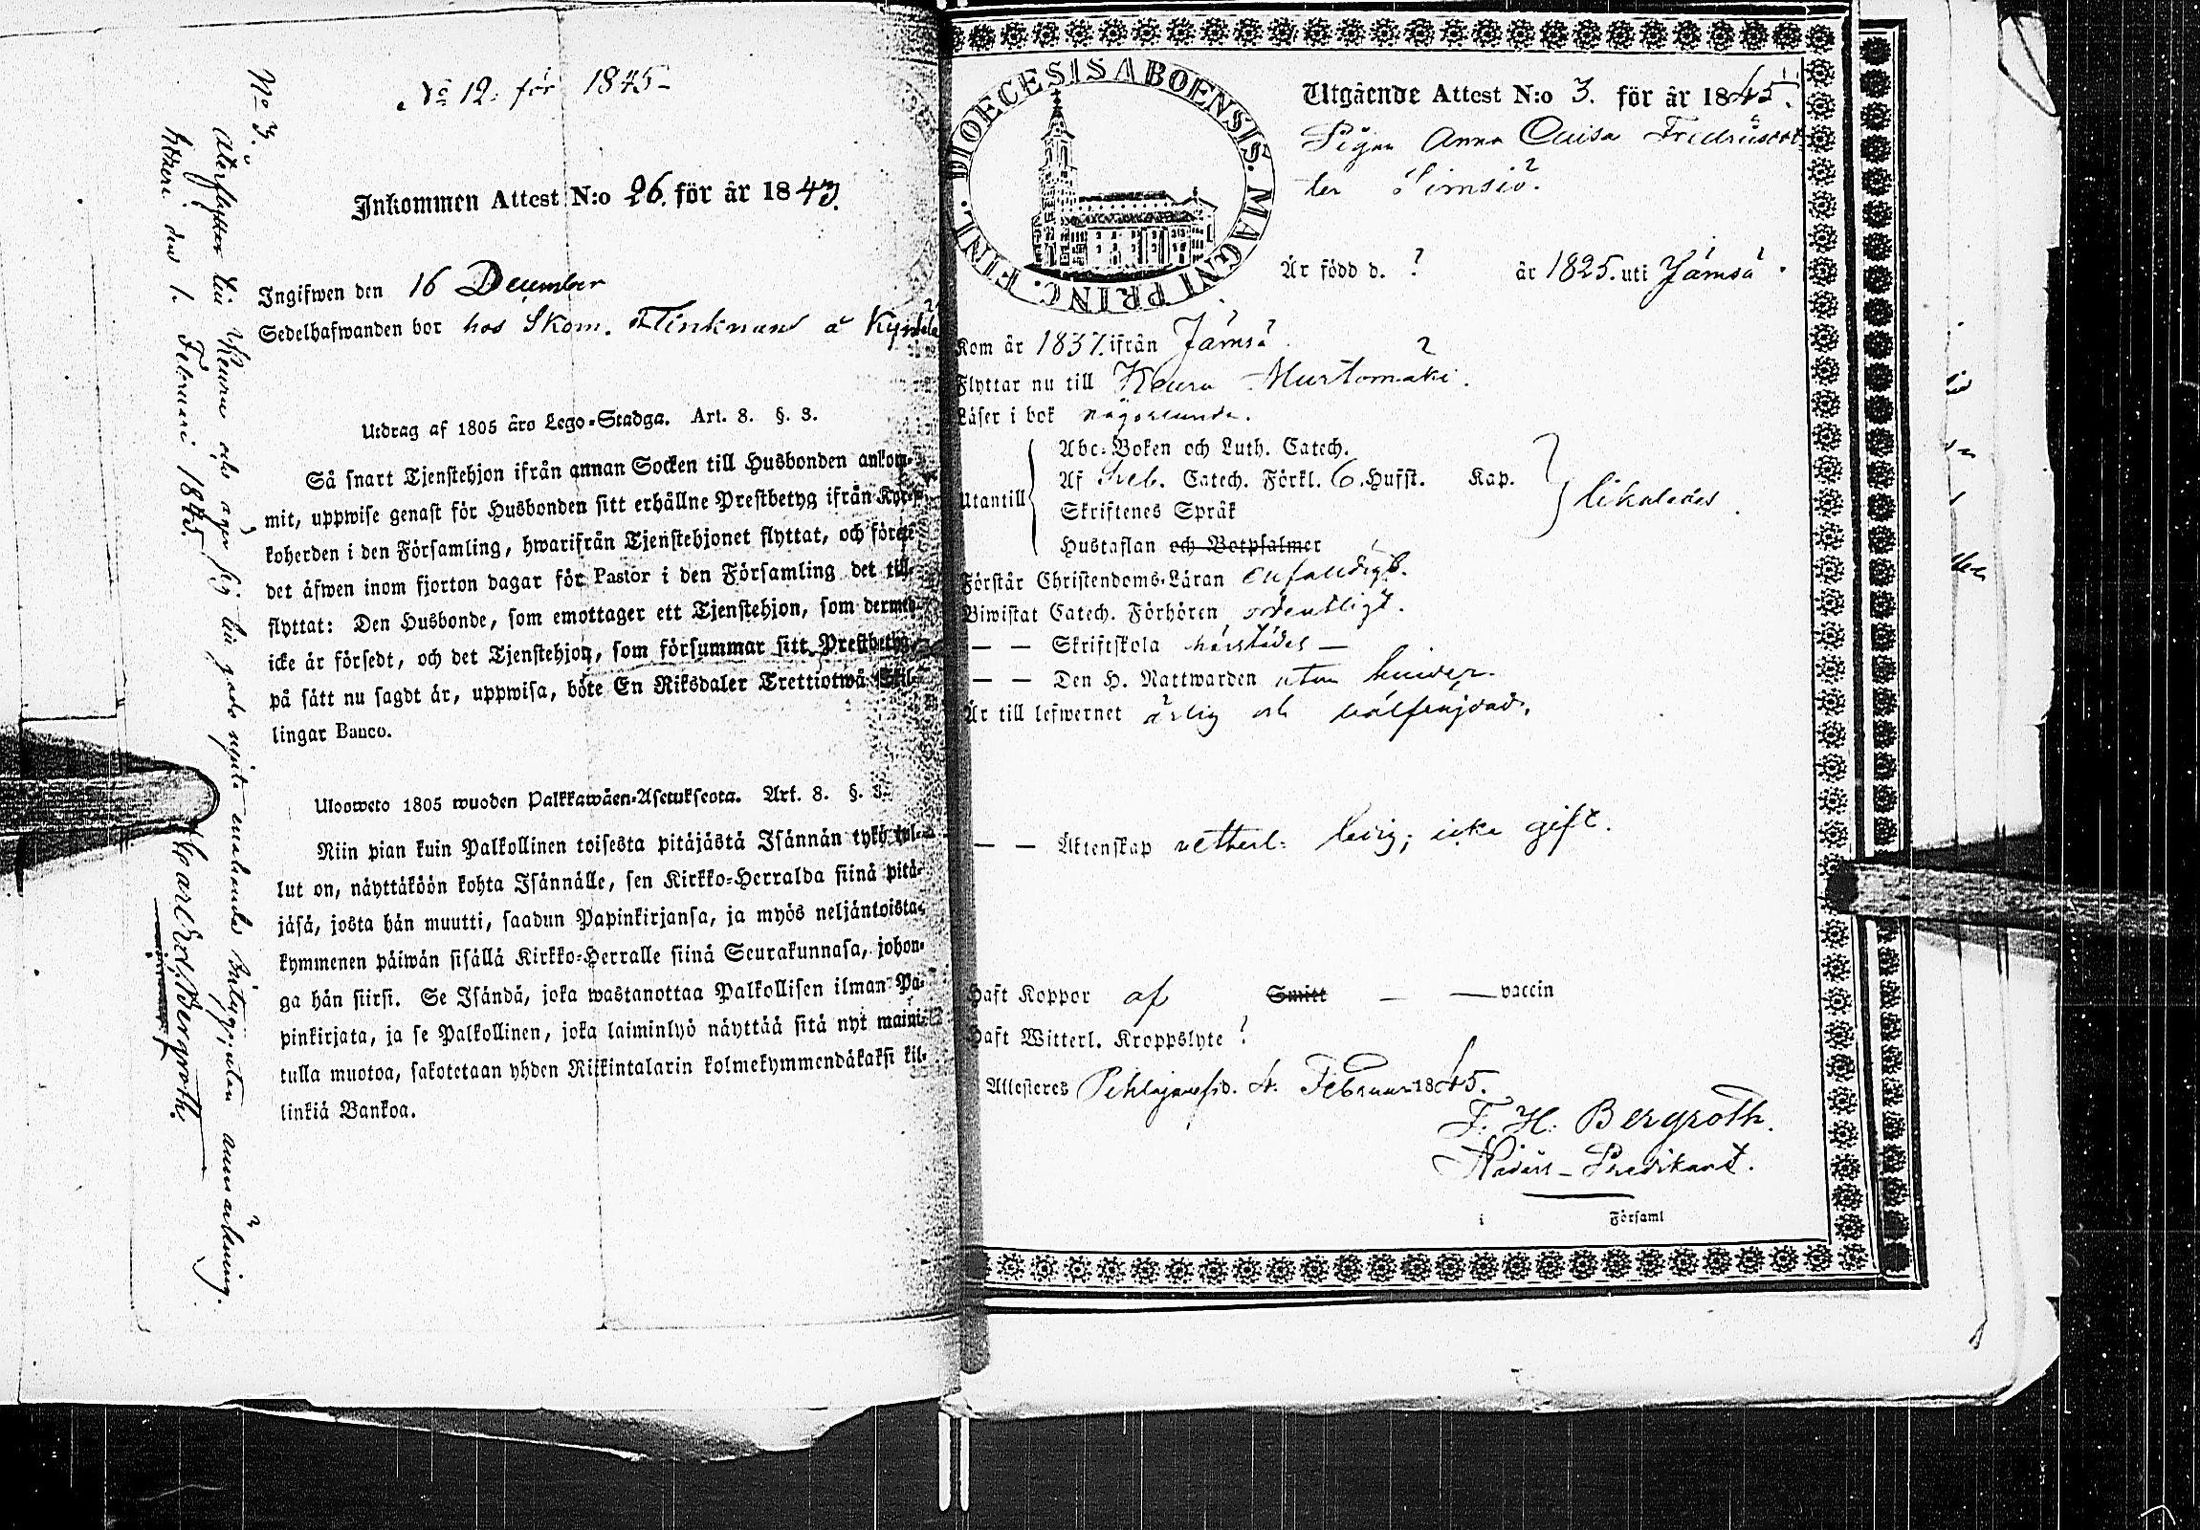 No 12. för 1845
Inkommen Attest N:o 26. för år 1843.
Ingifwen den 16 December
Sedelhafwanden bor hos Skom. Flinkman å
Utdrag af 1805 års Lego-Stadga. Art. 8. §. 3.
Så snart Tjenstehjon ifrån annan Socken till Husbonden ankom-
mit, uppwise genast för Husbonden sitt erhållne Prestbetyg ifrån Kyr-
koherden i den Församling, hwarifrån Tjenstehjonet flyttat, och förete
det äfwen inom fjorton dagar för Pastor i den Församling det till-
flyttat: Den Husbonde, som emottager ett Tjenstehjon, som dermed
icke är försedt, och det Tjenstehjon, som försummar sitt Prestbetyg,
på sätt nu sagdt är, uppwisa, böte En Riksdaler Trettiotwå Skil-
lingar Banco.
Uloosweto 1805 wuoden Palkkawäen-Asetuksesta. Art. 8. §. 3.
Niin pian kuin Palkollinen toisesta pitäjästä Isännän tykö tul-
lut on, näyttäköön kohta Isännälle, sen Kirkko-Herralda siinä pitä-
jäsä, josta hän muutti, saadun Papinkirjansa, ja myös neljäntoista-
kymmenen päiwän sisällä Kirkko-Herralle siinä Seurakunnasa, johon-
ga hän siirsi. Se Isändä, joka wastanottaa Palkollisen ilman Pa-
pinkirjata, ja se Palkollinen, joka laiminlyö näyttää sitä nyt maini-
tulla muotoa, sakotetaan yhden Riikintalarin kolmekymmendäkaksi kil-
linkiä Bankoa.
No 3.
Återflyttar till Keuru och äger sig till godo njuta enahanda betyg, utan anmärkning.
den 1. Februari 1845.
Carl Ed. Bergroth.
DIOECESIS ABOENSIS. MAGNI PRINC. FINL.
Utgående Attest N:o 3. för år 1845.
Pigan Anna Lovisa Fredriksdot-
ter Simsiö.
Är född d. ? år 1825. uti Jämsä.
Kom år 1837. ifrån Jämsä
Flyttar nu till Keuru Murtomäki.
Läser i bok någorlunda.
Utantill
Abc-Boken och Luth. Catech.
Af Sveb. Catech. Förkl. 6. Hufst. Kap.
Skriftenes Språk
Hustaflan och Botpsalmer
likaledes
Förstår Christendoms-Läran enfaldigt.
Biwistat Catech. Förhören ordentligt.
— — Skriftskola härstädes —
— — Den H. Nattwarden utan hinder.
Är till lefwernet ärlig och wälfräjdad.
— — Äktenskap vetterl: ledig; icke gift.
Haft Koppor af Smitt — — vaccin
Haft Witterl. Kroppslyte ?
Attesteres Pihlajavesi d. 4. Februar. 1845.
F. H. Bergroth.
Nådårs-Predikant.
i Församl